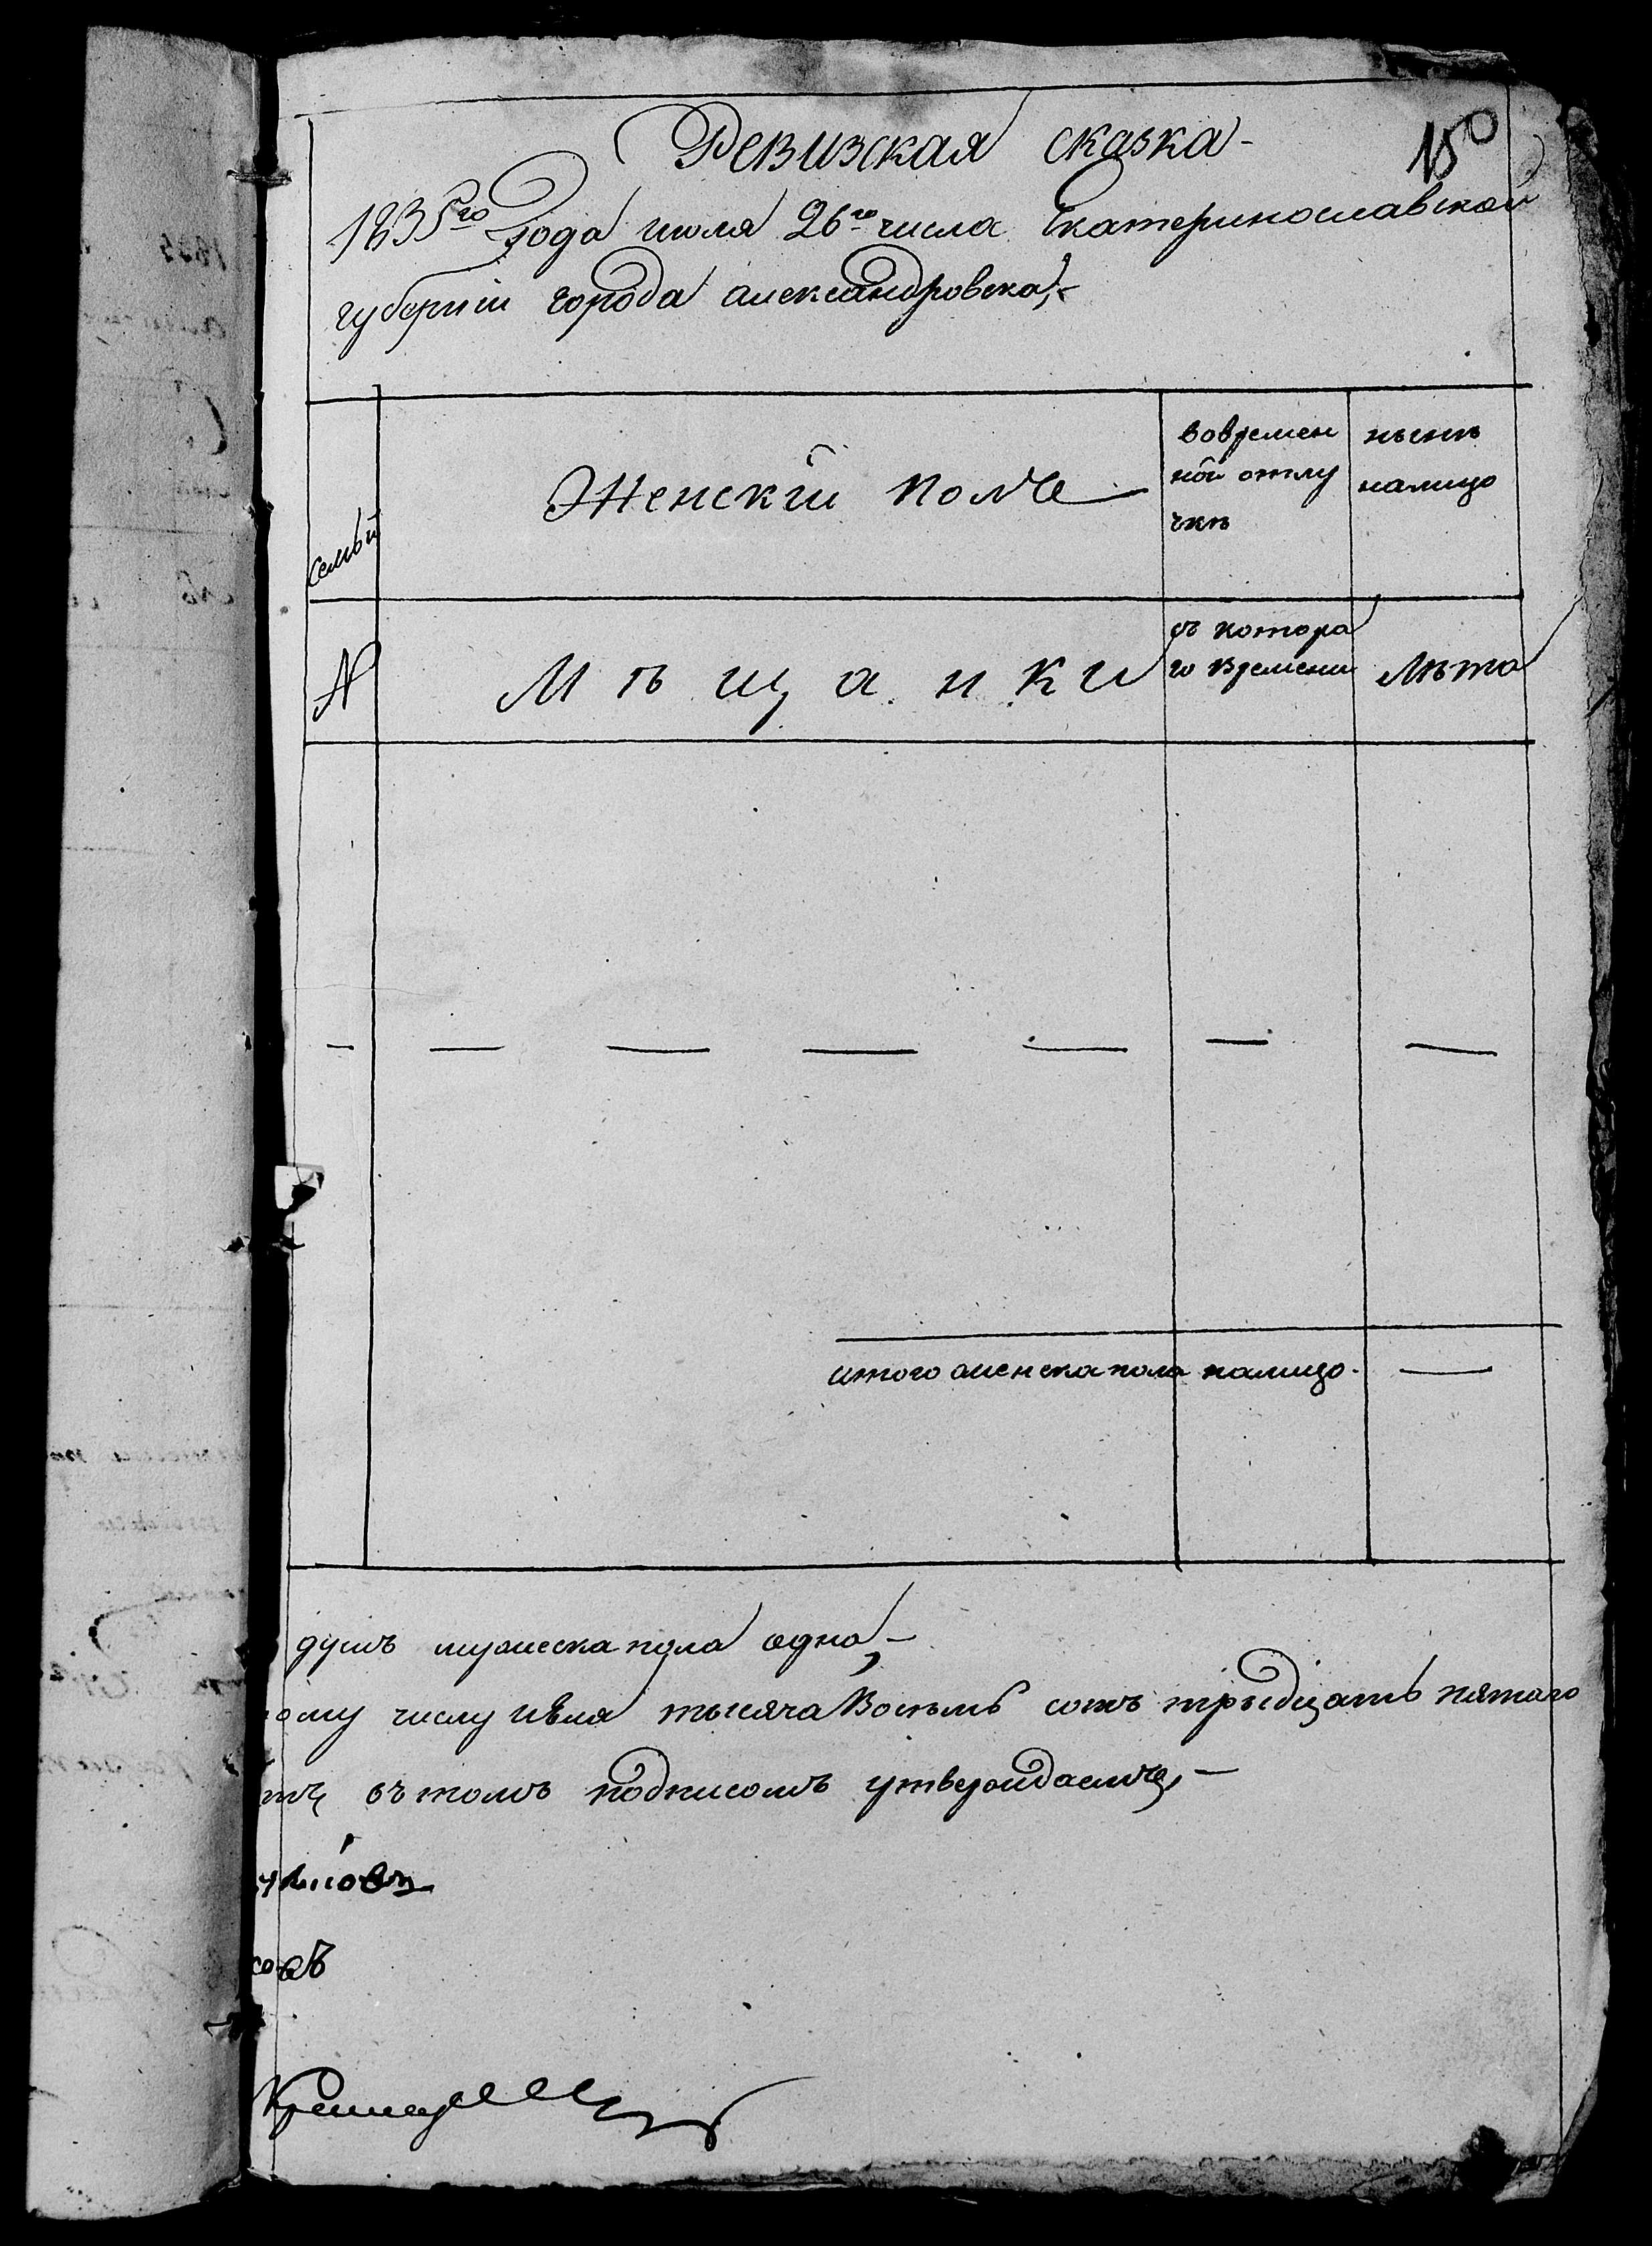 Ревизская сказка
150
1835го года июля 26го числа Екатеринославской
губернии города александровска,
семьи
Женскiй полъ
вовремен
ной отлу
чкѣ
нынѣ
налицо
№
Мѣщанки
съ котора
го времени
Лѣта
итого женска пола налицо
душъ мужеска пола одна,
ому числу июля тысяча восемь сотъ тридцать пятаго
въ томъ подписомъ утверждаемъ,